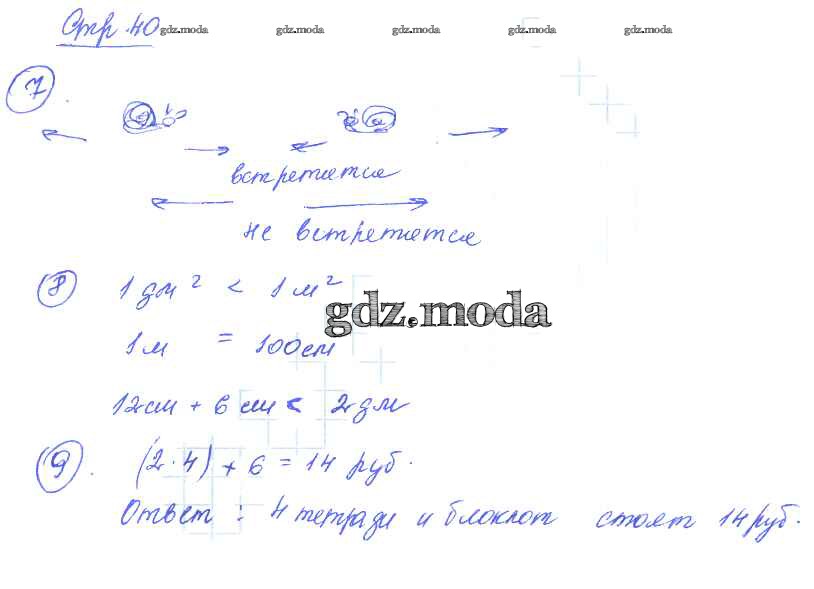 Стр. 40 gdz.moda gdz.moda gdz.moda gdz.moda gdz.moda
7
встретятся
не встретятся
8 1 дм² < 1 м²
gdz.moda
1м = 100см
12см + 6 см < 2дм
9. (2·4) + 6 = 14 руб.
Ответ: 4 тетради и блокнот стоят 14 руб.